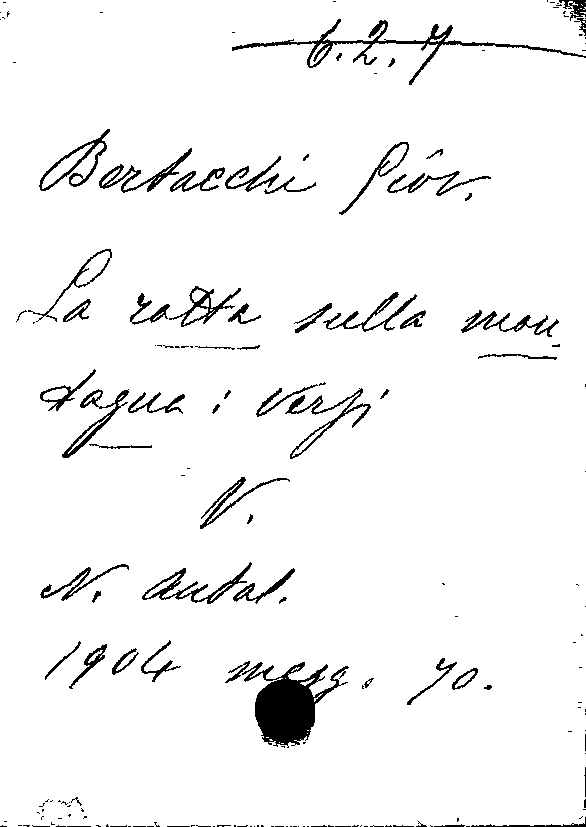 6.2.7
Bertacchi Giov.
La rotta sulla mon
tagna: Versi
V.
N. Antol.
1904 magg. 70.